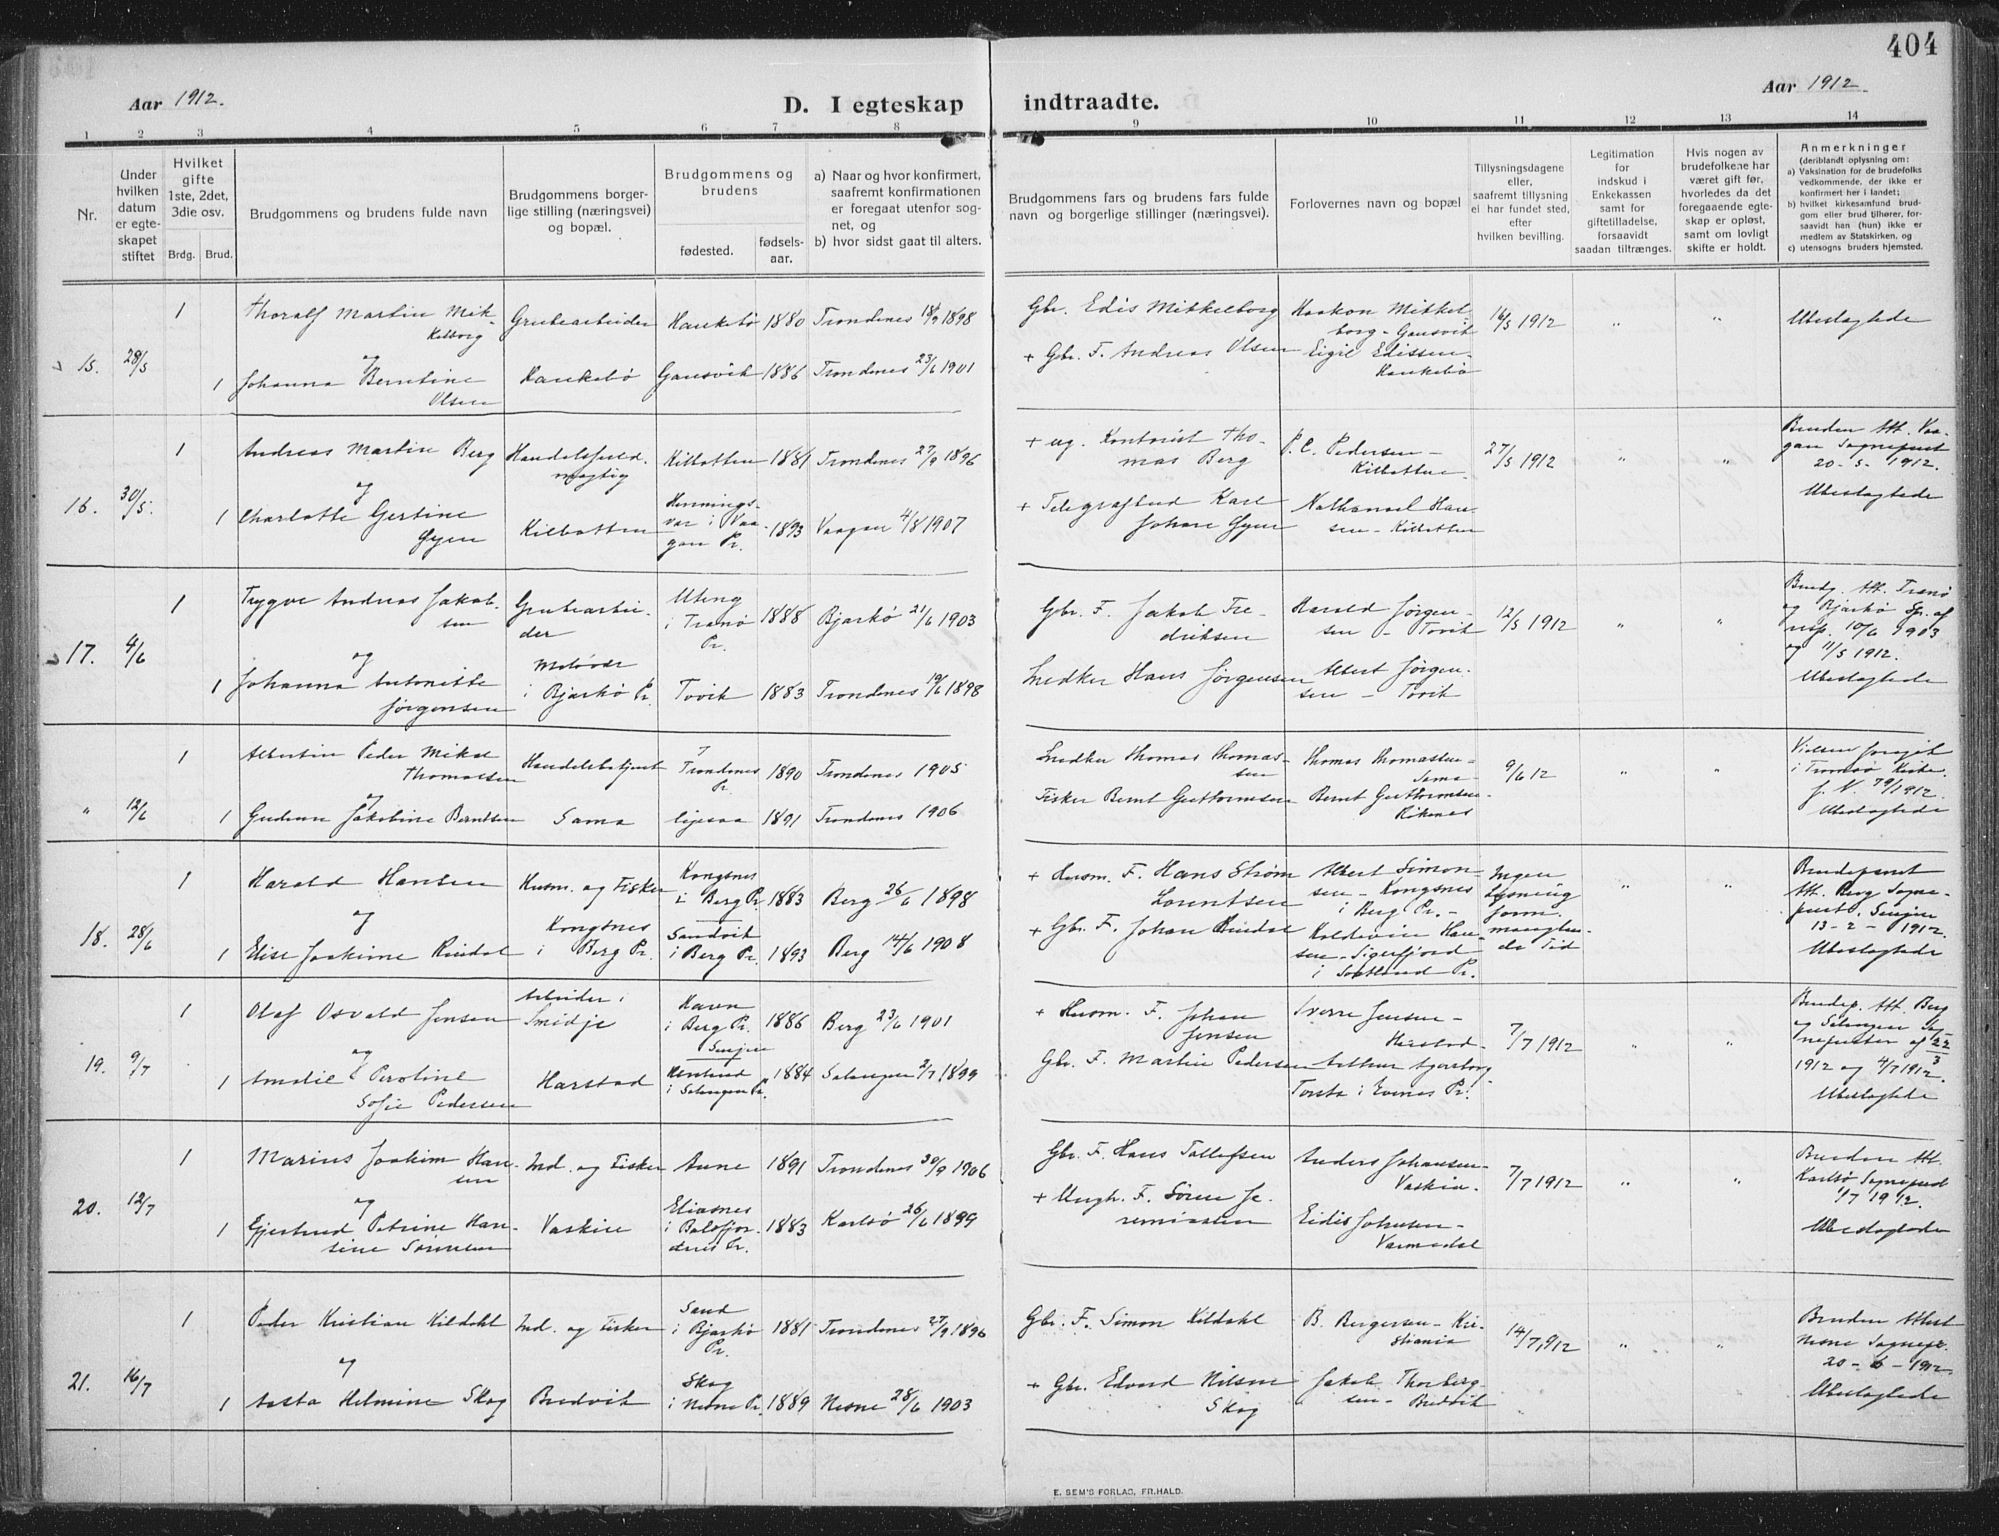 404
Aar 1912.
D. I egteskap indtraadte.
Aar 1912.
1 2 3 4 5 6 7 8 9 10 11 12 13 14
Nr.
Under hvilken datum er egteskapet stiftet
Hvilket gifte 1ste, 2det, 3die osv.
Brdg. Brud.
Brudgommens og brudens fulde navn
Brudgommens borgerlige stilling (næringsvei) og bopæl.
Brudgommens og brudens
fødested.
fødselsaar.
a) Naar og hvor konfirmert, saafremt konfirmationen er foregaat utenfor sognet, og
b) hvor sidst gaat til alters.
Brudgommens fars og brudens fars fulde navn og borgerlige stillinger (næringsvei).
Forlovernes navn og bopæl
Tillysningsdagene eller, saafremt tillysning ei har fundet sted, efter hvilken bevilling.
Legitimation for indskud i Enkekassen samt for giftetilladelse, forsaavidt saadan tiltrænges.
Hvis nogen av brudefolkene har været gift før, hvorledes da det foregaaende egteskap er opløst, samt om lovligt skifte er holdt.
Anmerkninger
(deriblandt oplysning om:
a) Vaksination for de brudefolks vedkommende, der ikke er konfirmert her i landet;
b) hvilket kirkesamfund brudgom eller brud tilhører, forsaavidt han (hun) ikke er medlem av Statskirken, og
c) utensogns bruders hjemsted.
15. 28/5
1 Thoralf Martin Mikkelborg Grubearbeider Haukebø 1880 Trondenes 18/9 1898
og
1 Johanna Berntine Olsen Haukebø Gansvik 1886 Trondenes 23/6 1901
Gbr. Edis Mikkelborg
+ Gbr. F. Andreas Olsen
Haakon Mikkelborg - Gansvik
Eigil Edissen - Haukebø
16/5 1912 " "
Ubeslegtede
16. 30/5.
1 Andreas Martin Berg Handelsfuldmægtig Kilbotten 1881 Trondenes 27/9 1896
og
1 Charlotte Gertine Gyen Kilbotten Henningsvær i Vaagan Pr. 1893 Vaagan 4/8 1907
+ ug. Kontorist Thomas Berg
+ Telegrafbud Karl Johan Gyen
P. C. Pedersen - Kilbotten
Nathanael Hansen - Kilbotten
27/5 1912 " "
Bruden Att. Vaagan Sogneprest 20-5-1912.
Ubeslegtede
17. 4/6
1 Trygve Andreas Jakobsen Grubearbeider i Tranø Pr. 1888 Bjarkø 21/6 1903
og
1 Johanna Antonette Jørgensen i Bjarkø Pr. Tovik 1883 Trondenes 19/6 1898
Gbr. F. Jakob Fredriksen
Snedker Hans Jørgensen
Harald Jørgensen - Tovik
Albert Jørgensen - Tovik
12/5 1912 " "
Brudg. Att. Tranø og Bjarkø Spr. af resp. 10/6 1903 og 11/5 1912.
Ubeslegtede
" 12/6
1 Albertin Peder Mikal Thomassen Handelsbetjent Trondenes Pr. 1890 Trondenes 1905
og
1 Gudrun Jakobine Berntsen Sama ligesaa 1891 Trondenes 1906
Snedker Thomas Thomassen
Fisker Bernt Guttormsen
Thomas Thomassen - Sama -
Bernt Guttormsen - Rikenes
9/6 12 " "
Vielsen foregik i Tromsø Kirke.
Ubeslegtede
18. 28/6
1 Harald Hansen Husm. og Fisker Kongsnes i Berg Pr. 1883 Berg 26/6 1898
og
1 Elise Joakime Rindal Kongsnes i Berg Pr. Sandvik i Berg Pr. 1893 Berg 14/6 1908
+ Husm. F. Hans Strøm Lorentsen
+ Gbr. F. Johan Rindal
Albert Simonsen - Kongsnes i Berg Pr. -
Hansen - Sigerfjord i Sortland Pr.
Ingen lysning form. manglende Tid
" "
Brudeparet Att. Berg Sogneprest. Senjen 13-2-1912.
Ubeslegtede
19. 9/7
1 Olaf Osvald Jensen Arbeider i Smidje Havn i Berg Pr. Senjen 1886 Berg 23/6 1901
og
1 Amalie Peroline Sofie Pedersen Harstad i Salangen Pr. 1884 Salangen 2/7 1899
+ Husm. F. Johan Jensen
Gbr. F. Martin Pedersen
Sverre Jensen - Harstad -
Arthur
i Evenes Pr.
7/7 1912 " "
Brudep. Att. Berg og Salangen Sognepræster af 22/3 1912 og 4/7 1912.
Ubeslegtede
20. 12/7
1 Marius Joakim Hansen Ind. og Fisker Aune 1891 Trondenes 30/9 1906
og
1 Gjertrud Petrine Hansine Sørensen Vaskire i Balsfjordens Pr. 1883 Karlsø 26/6 1899
Gbr. F. Hans Tollefsen
+ Ungk. F. Søren Jeremiassen
Anders Johansen - Vaskin.
Eidis Johnsen -
7/7 1912 " "
Bruden Att. Karlsø Sogneprest 1/7 1912.
Ubeslegtede
21. 16/7
1 Peder Kristian Kildahl Ind. og Fisker Sand i Bjarkø Pr. 1881 Trondenes 27/9 1896
og
1 Aasta Helmine Skog Bredvik Skog i Nesne Pr. 1889 Nesne 28/6 1903
Gbr. F. Simon Kildahl
+ Gbr. Edvard Nilsen Skog
B. Bergersen - Kristiania
Jakob Thorbergsen - Bredvik
14/7 1912 " "
Bruden Attest Nesne Sognepr. 20-6-1912.
Ubeslegtede
E. SEM'S FORLAG, FR.HALD.